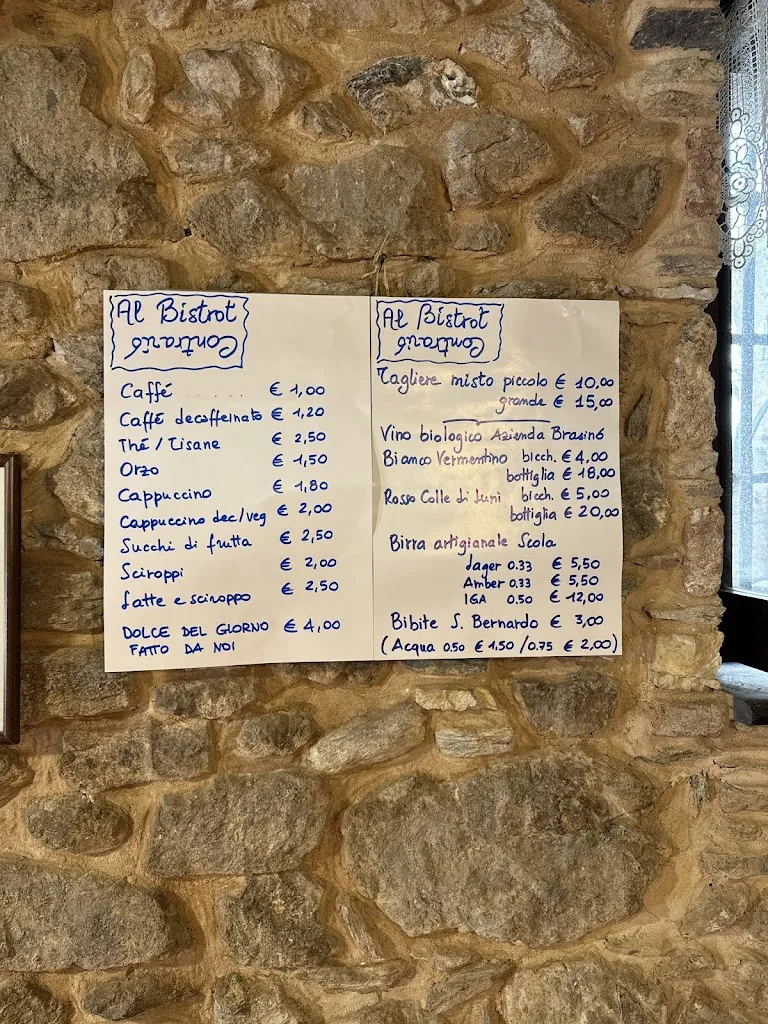 Al Bistrot
Contrario
Caffé ..... € 1,00
Caffé decaffeinato € 1,20
Thé / Tisane € 2,50
Orzo € 1,50
Cappuccino € 1,80
Cappuccino dec/veg € 2,00
Succhi di frutta € 2,50
Sciroppi € 2,00
Latte e sciroppo € 2,50
DOLCE DEL GIORNO € 4,00
FATTO DA NOI
Al Bistrot
Contrario
Tagliere misto piccolo € 10,00
grande € 15,00
Vino biologico Azienda Brasinò
Bianco Vermentino bicch. € 4,00
bottiglia € 18,00
Rosso Colle di Luni bicch. € 5,00
bottiglia € 20,00
Birra artigianale Scola
Lager 0.33 € 5,50
Amber 0.33 € 5,50
IGA 0.50 € 12,00
Bibite S. Bernardo € 3,00
(Acqua 0.50 € 1.50 / 0.75 € 2,00)